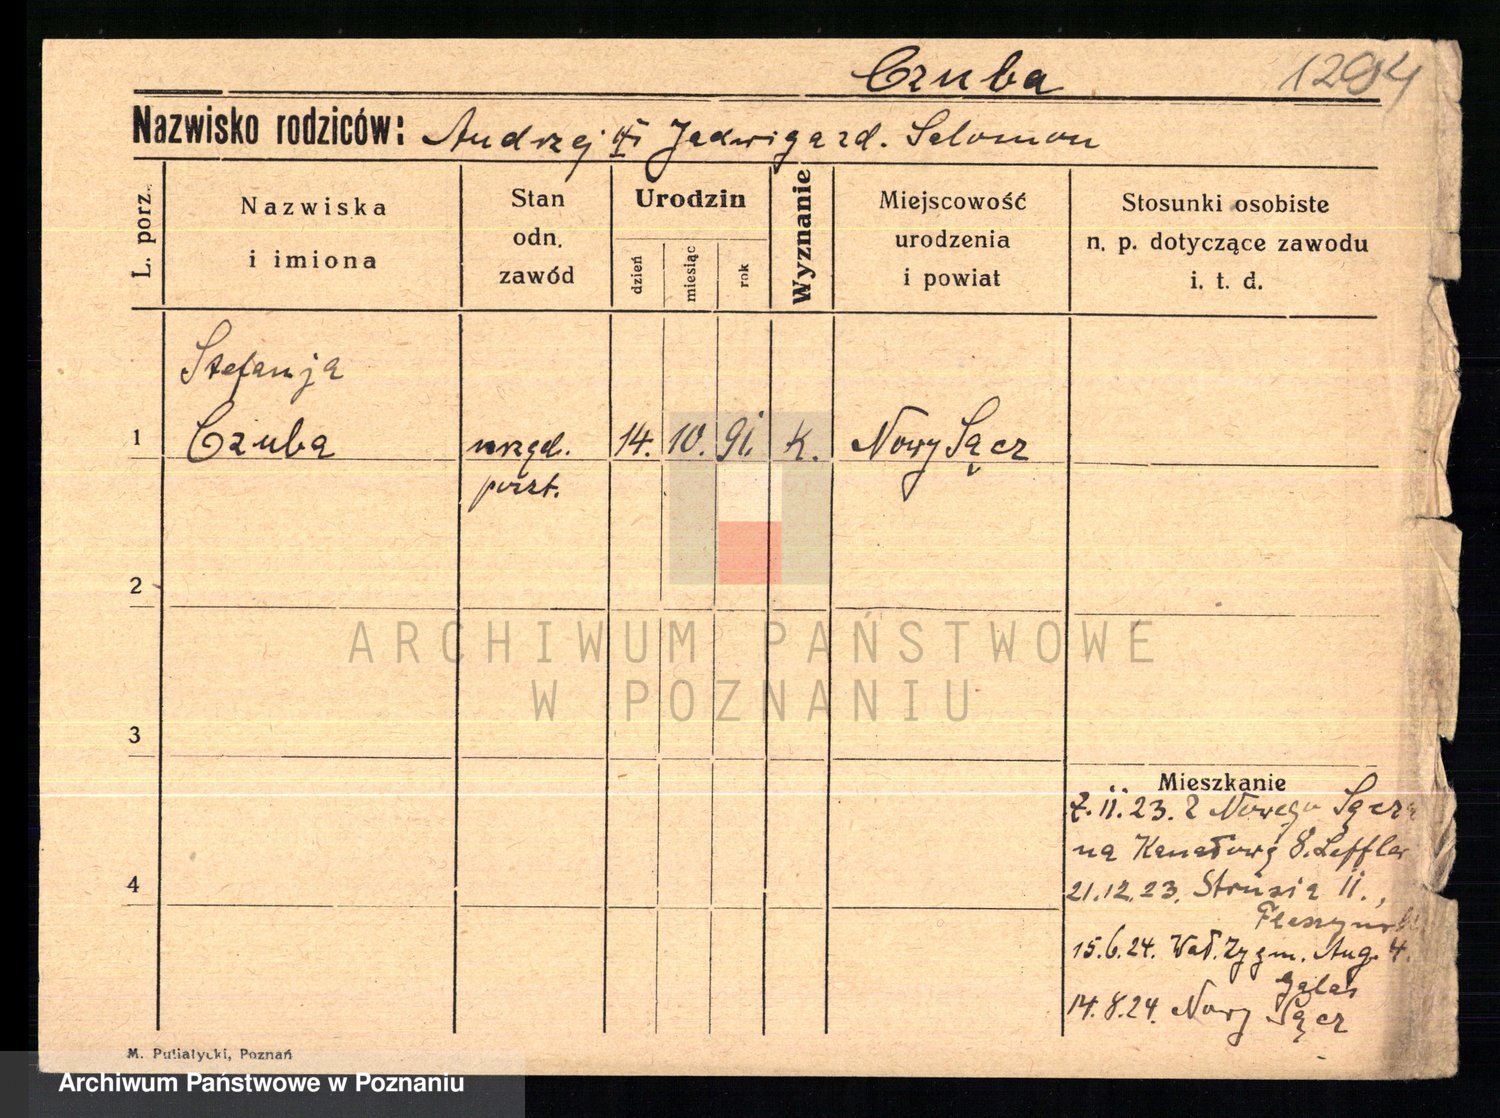 Czuba
1294
Nazwisko rodziców: Andrzej Jadwiga zd. Salomon
L. porz.
Nazwiska
i imiona
Stan
odn.
zawód
Urodzin
dzień
miesiąc
rok
Wyznanie
Miejscowość
urodzenia
i powiat
Stosunki osobiste
n. p. dotyczące zawodu
i. t. d.
Stefanja
1 Czuba urzęd. 14. 10. 91. k. Nowy Sącz
poczt.
2
ARCHIWUM PAŃSTWOWE
W POZNANIU
3
Mieszkanie
7.11.23. z Nowego Sącza
na Kanałową 8. Leffler
4
21.12.23. Strusia 11.,
15.6.24. Wał. Zygm. Aug. 4.
14.8.24. Nowy Sącz
M. Putiatycki, Poznań
Archiwum Państwowe w Poznaniu